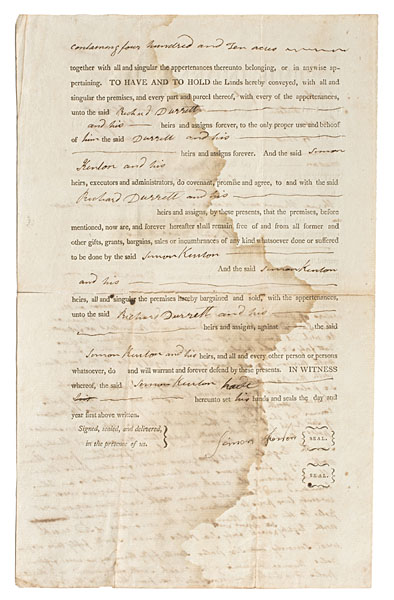 containing four hundred and Ten acres
together with all and singular the appertenances thereunto belonging, or in anywise ap-
pertaining. TO HAVE AND TO HOLD the Lands hereby conveyed, with all and
singular the premises, and every part and parcel thereof, with every of the appertenances,
unto the said Richard Durrett
and his heirs and assigns forever, to the only proper use and behoof
of him the said Durrett and his
heirs and assigns forever. And the said Simon
Kenton and his
heirs, executors and administrators, do covenant, promise and agree, to and with the said
Richard Durrett and his
heirs and assigns, by these presents, that the premises, before
mentioned, now are, and forever hereafter shall remain free of and from all former and
other gifts, grants, bargains, sales or incumbrances of any kind whatsoever done or suffered
to be done by the said Simon Kenton
And the said Simon Kenton
and his
heirs, all and singular the premises hereby bargained and sold, with the appertenances,
unto the said Richard Durrett and his
heirs and assigns, against the said
Simon Kenton and his heirs, and all and every other person or persons
whatsoever, do and will warrant and forever defend by these presents. IN WITNESS
whereof, the said Simon Kenton have
hereunto set his hands and seals the day and
year first above written.
Signed, sealed, and delivered,
in the presence of us.
Simon Kenton SEAL.
SEAL.